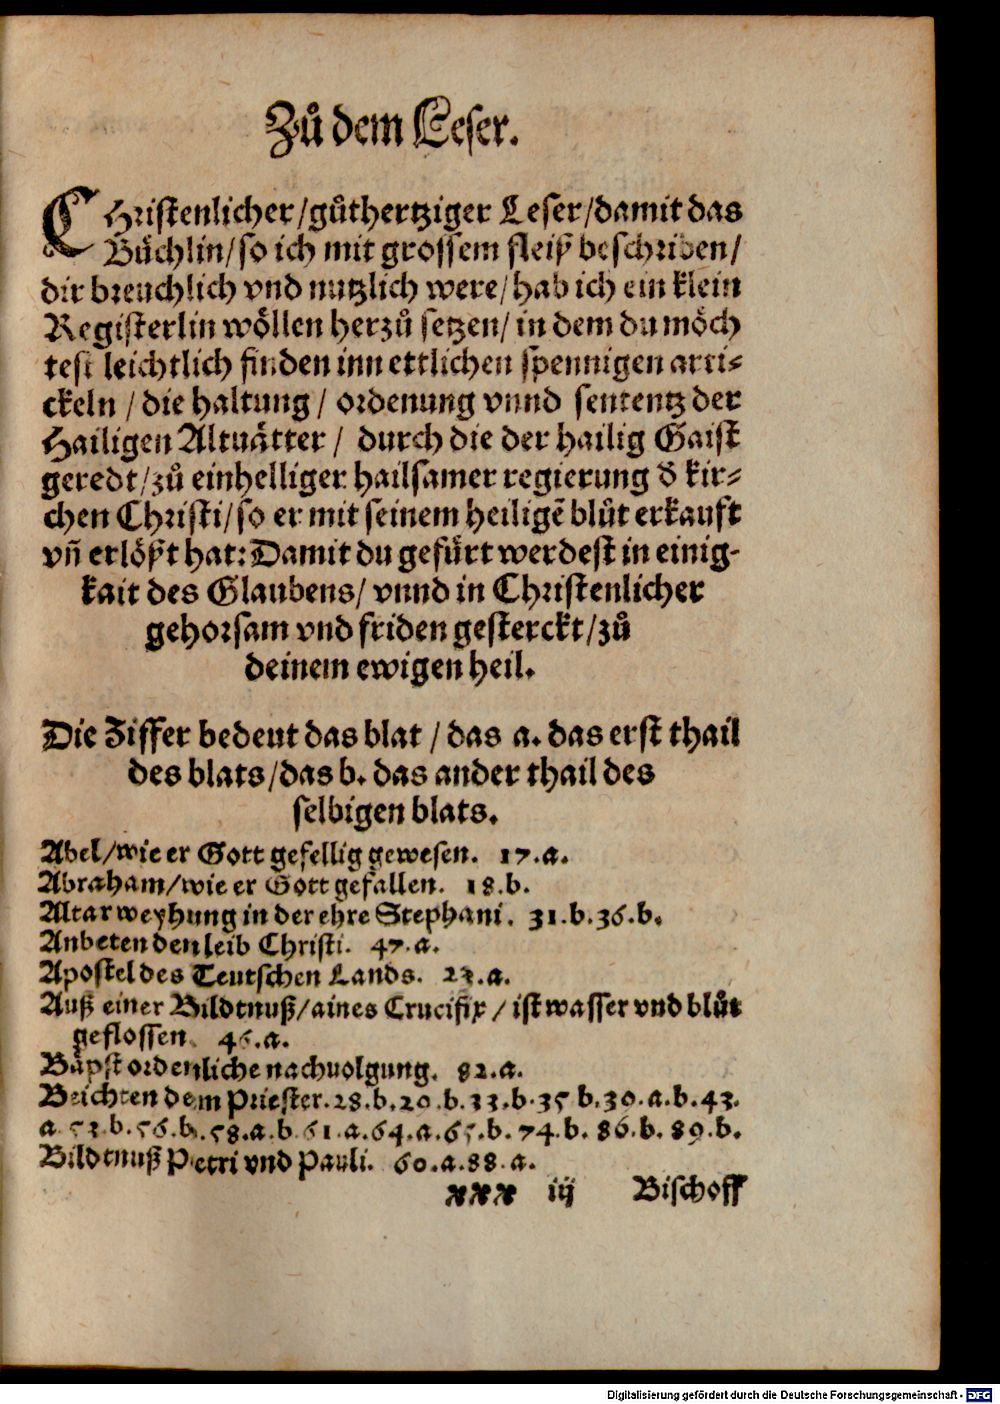 Zů dem Leser.
CHristenlicher/gůthertziger Leser/damit das
Büchlin/so ich mit grossem fleiß beschriben/
dir breuchlich vnd nutzlich were/hab ich ein klein
Registerlin wöllen herzů setzen/in dem du möch
test leichtlich finden inn ettlichen spennigen arti-
ckeln / die haltung / ordenung vnnd sententz der
Hailigen Altuätter / durch die der hailig Gaist
geredt/zů einhelliger hailsamer regierung d̕ kir-
chen Christi/so er mit seinem heiligẽ blůt erkauft
vñ erlößt hat: Damit du gefürt werdest in einig-
kait des Glaubens/ vnnd in Christenlicher
gehorsam vnd friden gesterckt/zů
deinem ewigen heil.
Die Ziffer bedeut das blat / das a. das erst thail
des blats/das b. das ander thail des
selbigen blats.
Abel/wie er Gott gefellig gewesen. 17.a.
Abraham/wie er Gott gefallen. 18.b.
Altar weyhung in der ehre Stephani. 31.b.36.b.
Anbeten den leib Christi. 47.a.
Apostel des Teutschen Lands. 23.a.
Auß einer Bildtnuß/aines Crucifix / ist wasser vnd blůt
geflossen. 46.a.
Bäpst ordenliche nachuolgung. 82.a.
Beichten dem Priester.28.b.20.b.33.b.35 b.30.a.b.43.
a.53.b.56.b.58.a.b.61.a.64.a.65.b.74.b.86.b.89.b.
Bildtnuß Petri vnd Pauli. 60.a.88.a.
xxx iij Bischoff
Digitalisierung gefördert durch die Deutsche Forschungsgemeinschaft - DFG